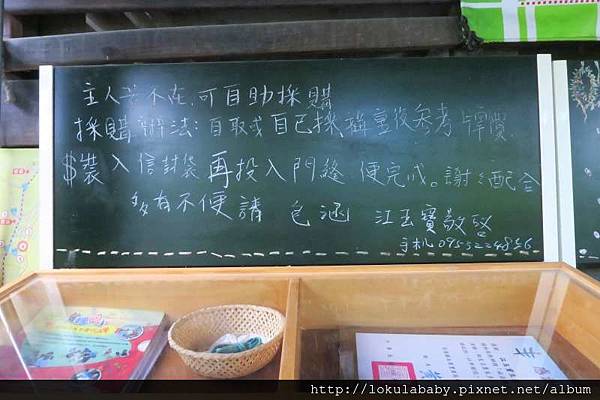 主人若不在,可自助採購
採購辦法:自取或自己採稱重後參考
$裝入信封袋再投入門縫便完成。謝謝配合
多有不便請 包涵 江玉寶敬啟
手机0955224856
http://lokulababy.pixnet.net/album